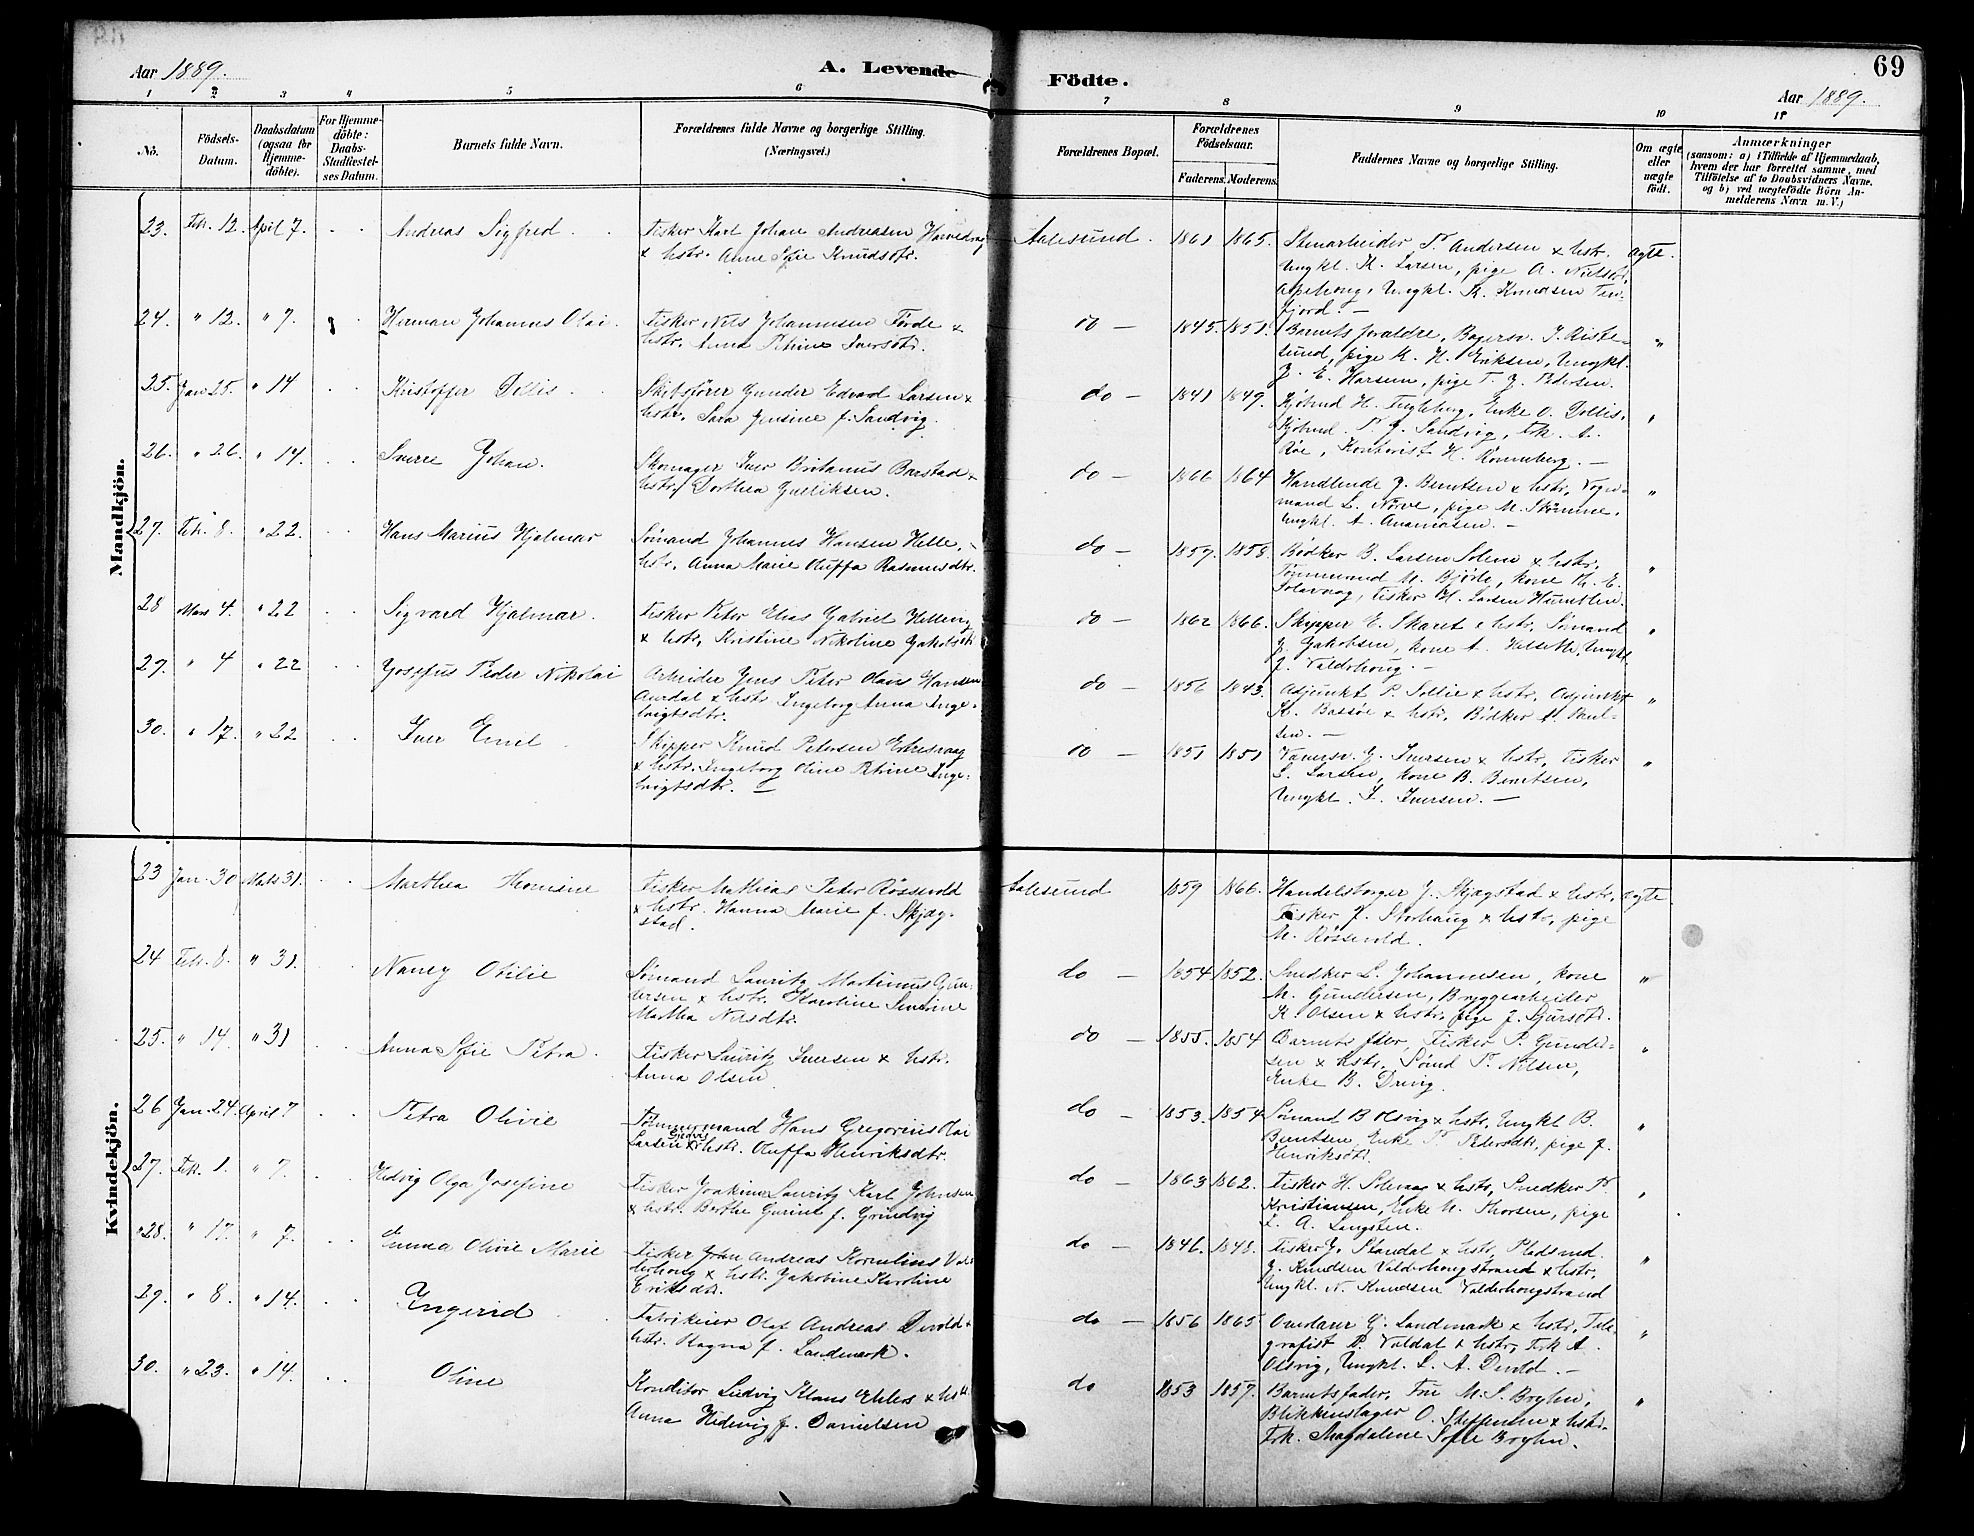 Aar 1889.
A. Levende Födte.
69
Aar 1889.
1 2 3 4 5 6 7 8 9 10 11
No.
Födsels-
Datum.
Daabsdatum
(ogsaa for
Hjemme-
döbte).
For Hjemme-
döbte:
Daabs-
Stadfæstel-
ses Datum.
Barnets fulde Navn.
Forældrenes fulde Navne og borgerlige Stilling.
(Næringsvei.)
Forældrenes Bopæl.
Forældrenes
Födselsaar.
Faderens. Moderens.
Faddernes Navne og borgerlige Stilling.
Om ægte
eller
uægte
födt.
Anmærkninger
(saasom: a) i Tilfælde af Hjemmedaab,
hvem der har forrettet samme, med
Tilföielse af to Daabsvidners Navne,
og b) ved uægtefödte Börn An-
melderens Navn m. V.)
Mandkjön.
23. Feb. 12. April 7. Andreas Sigfred
Fisker Karl Johan Andreasen
& hstr. Anne Sofie Knudsdtr.
Aalesund. 1861 1865.
Stenarbeider P. Andersen & hstr.
Ungkl. K. Larsen, pige A.
Ungkl. K. Knudsen
fjord. —
ægte.
24. " 12. " 7. Herman Johannes Olai.
Fisker Nils Johannesen Förde &
hstr. Anna Petrine Iversdtr.
do — 1845. 1851.
Barnets forældre, Bagersv. J. Riste-
sund, pige K. H. Eriksen, Ungkl.
J. E. Hansen, pige T. J. Pedersen.
"
25. Jan 25. " 14 Kristoffer Döllis
Skibsförer Gunder Edvard Larsen &
hstr. Sara Jensine f. Sandvig.
do — 1841 1849.
Kjöbmd H. Engleberg, Enke O. Döllis,
Kjöbmd. P. J. Sandvig, Frk. A.
Röe, Kontorist H. Rönneberg. —
"
26. " 26. " 14. Sverre Johan.
Skomager Iver Britanus Barstad &
hstr. Dorthea Gulliksen.
do — 1866 1864
Handlende J. Berntsen & hstr. Vogn-
mand L. Nörve, pige M. Strömme,
Ungkl. A. Ananiasen. —
"
27. Feb. 8. " 22. Hans Marius Hjalmar
Sömand Johannes Hansen Helle, &
hstr. Anna Marie Oluffa Rasmusdtr.
do — 1859. 1858.
Bödker B. Larsen Solem & hstr.
Tömmermand M. Björlo, kone K. E.
Solavaag, Fisker H. Larsen
"
28 Mars 4. " 22 Sigvard Hjalmar.
Fisker Peter Elias Gabriel Hellevig
& hstr. Kristine Nikoline Jakobsdtr
do — 1862 1866.
Skipper E. Skaret & hstr. Sömand
J. Jakobsen, kone A. Helseth, Ungkl.
J. Valderhoug. —
"
29. " 4 " 22 Josefus Peder Nikolai
Arbeider Jens Peter Olaus Hansen
Aurdal & hstr. Ingeborg Anna Inge-
brigtsdtr.
do — 1856 1843.
Adjunkt P. Sollie & hstr, Adjunkt
K. Bassöe & hstr, Bödker A. Paul-
sen. —
"
30. " 17. " 22 Iver Emil
Skipper Knud Petersen
& hstr. Ingeborg Oline Petrine Inge-
brigtsdtr. —
do — 1851 1851
J. Iversen & hstr, Fisker
L. Larsen, kone B. Berntsen,
Ungkl. I. Iversen. —
"
Kvindekjön.
23 Jan. 30 Mars 31. Marthea Hermine
Fisker Mathias Peter Røssevold
& hstr. Hanna Marie f. Skjæg-
stad.
Aalesund 1859 1866.
Handelsborger J. Skjægstad & hstr.
Fisker J. Storhaug & hstr, pige
M. Røssevold.
ægte
24 Feb. 8. " 31. Nancy Otilie
Sömand Lauritz Martinus Gun-
dersen & hstr. Karoline
Martha Nilsdtr.
do — 1854 1852.
Snedker L. Johannesen, kone
M. Gundersen, Bryggearbeider
K. Olsen & hstr. pige J. Sjursdtr.
"
25. " 14. " 31 Anna Sofie Petra.
Fisker Lauritz Iversen & hstr.
Anna Olsen
do — 1855. 1854
Barnets fader, Fisker P. Gunder-
sen & hstr. Sömd P. Nilsen,
Enke B. Dravig.
"
26 Jan. 24. April 7 Petra Olivie
Tömmermand Hans Gregorius Olai
Larsen & hstr. Oluffa Henriksdtr.
do — 1853. 1854
Sömand B. Olsvig & hstr, Ungkl. B.
Berntsen, Enke P. Pedersdtr, pige J.
Henriksdtr.
"
27. Feb. 1. " 7. Hedvig Olga Josefine
Fisker Joakim Lauritz Karl Johnsen
& hstr. Berthe Gurine f. Grindvig
do — 1863 1862.
Fisker H. Solevag & hstr, Snedker P.
Kristiansen, Enke M. Thorsen, pige
L. A. Langsten.
"
28. " 17. " 7. Emma Olivie Marie
Fisker John Andreas Kornelius Val-
derhoug & hstr. Jakobine Karoline
Eriksdtr.
do — 1846. 1848.
Fisker J. Standal & hstr, Pladsmd.
J. Knudsen Valderhougstrand & hstr,
Ungkl. N. Knudsen Valderhougstrand
"
29. " 8. " 14. Ingerid
Fabrikeier Olaf Andreas Devold &
hstr. Ragna f. Landmark.
do — 1856 1865
G. Landmark & hstr, Tele-
grafist P. Valdal & hstr, Frk A.
Olsvig, Ungkl. L. A. Devold. —
"
30. " 23. " 14. Oline
Konditor Ludvig Klaus Ehlers & hstr.
Anna Hedevig f. Danielsen
do 1853 1857.
Barnets fader, Fru M. S. Bryhn,
Blikkenslager O. Steffensen & hstr.
Frk. Magdalene Sofie Bryhn.
"